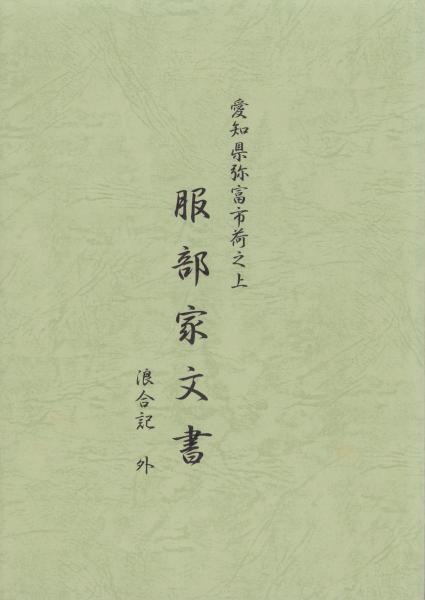 愛知県弥富市荷之上
服部家文書
浪合記 外